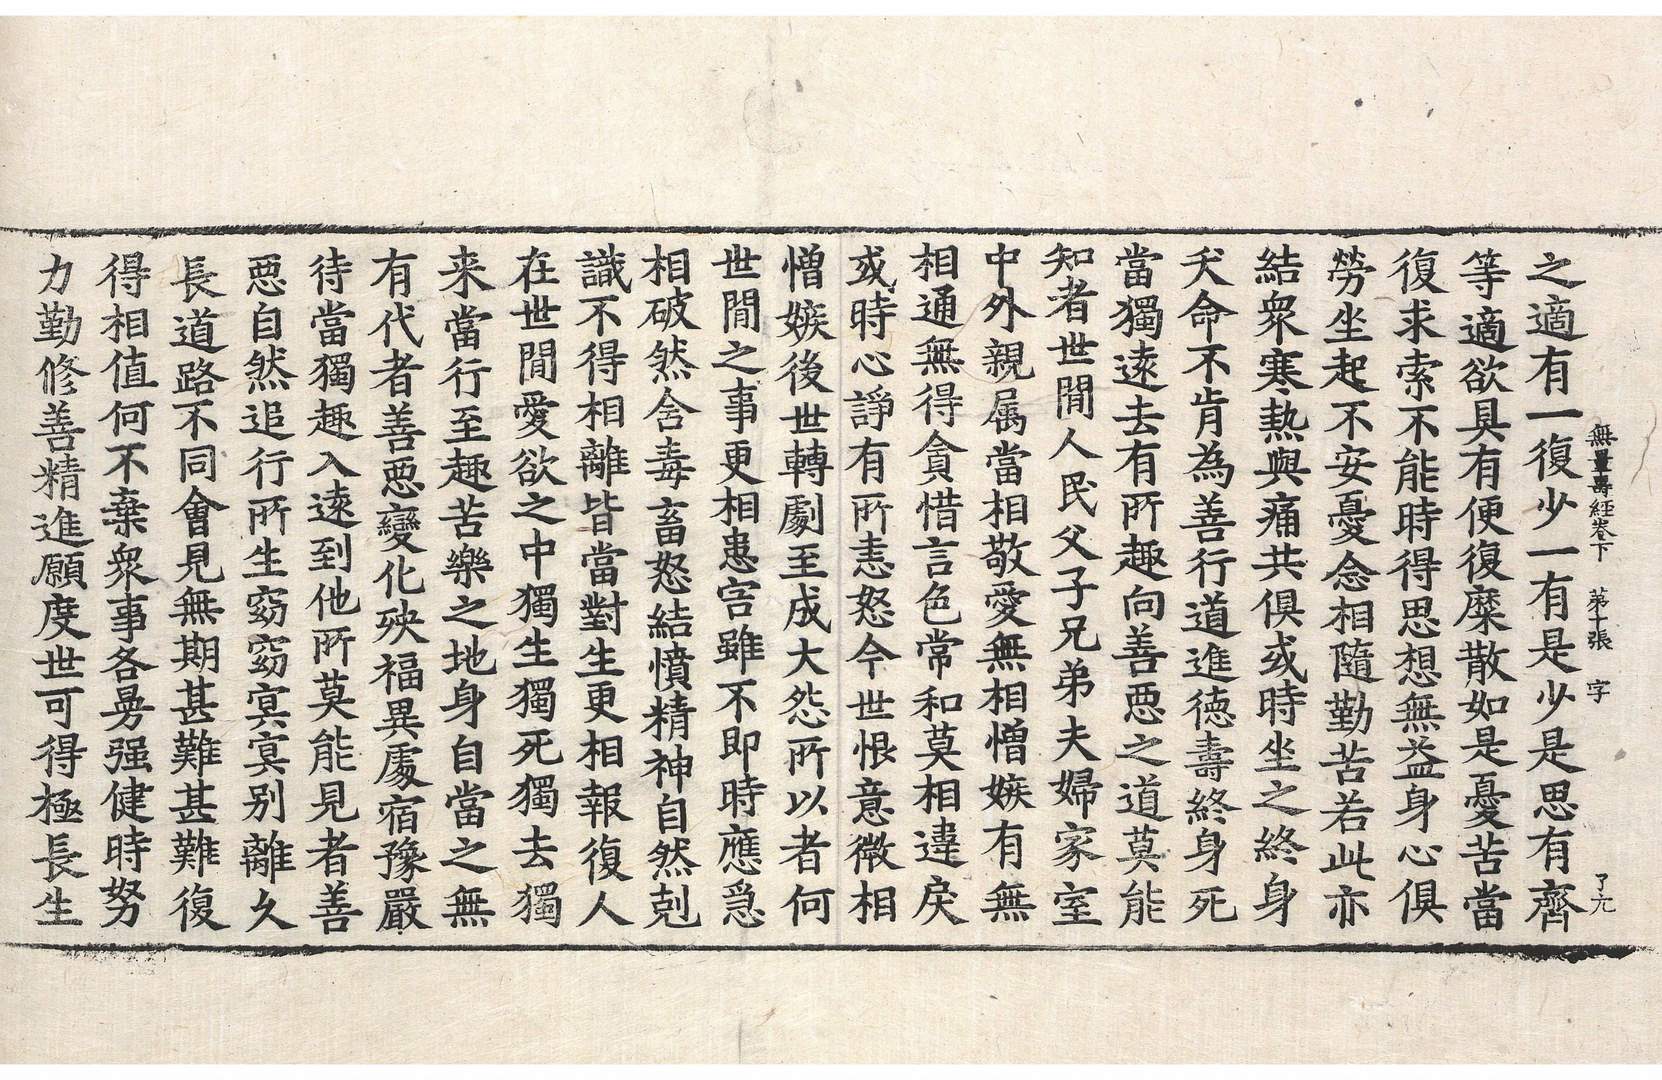 無量壽經卷下 第十張 字 了九
之適有一復少一有是少是思有齊
等適欲具有便復糜散如是憂苦當
復求索不能時得思想無益身心俱
勞坐起不安憂念相隨勤苦若此亦
結衆寒熱與痛共俱或時坐之終身
夭命不肯為善行道進德壽終身死
當獨遠去有所趣向善惡之道莫能
知者世閒人民父子兄弟夫婦家室
中外親属當相敬愛無相憎嫉有無
相通無得貪惜言色常和莫相違戾
或時心諍有所恚怒今世恨意微相
憎嫉後世轉劇至成大怨所以者何
世閒之事更相患害雖不即時應急
相破然含毒畜怒結憤精神自然剋
識不得相離皆當對生更相報復人
在世閒愛欲之中獨生獨死獨去獨
来當行至趣苦樂之地身自當之無
有代者善惡變化殃福異處宿豫嚴
待當獨趣入遠到他所莫能見者善
惡自然追行所生窈窈冥冥别離久
長道路不同會見無期甚難甚難復
得相值何不棄衆事各曼强健時努
力勤修善精進願度世可得極長生